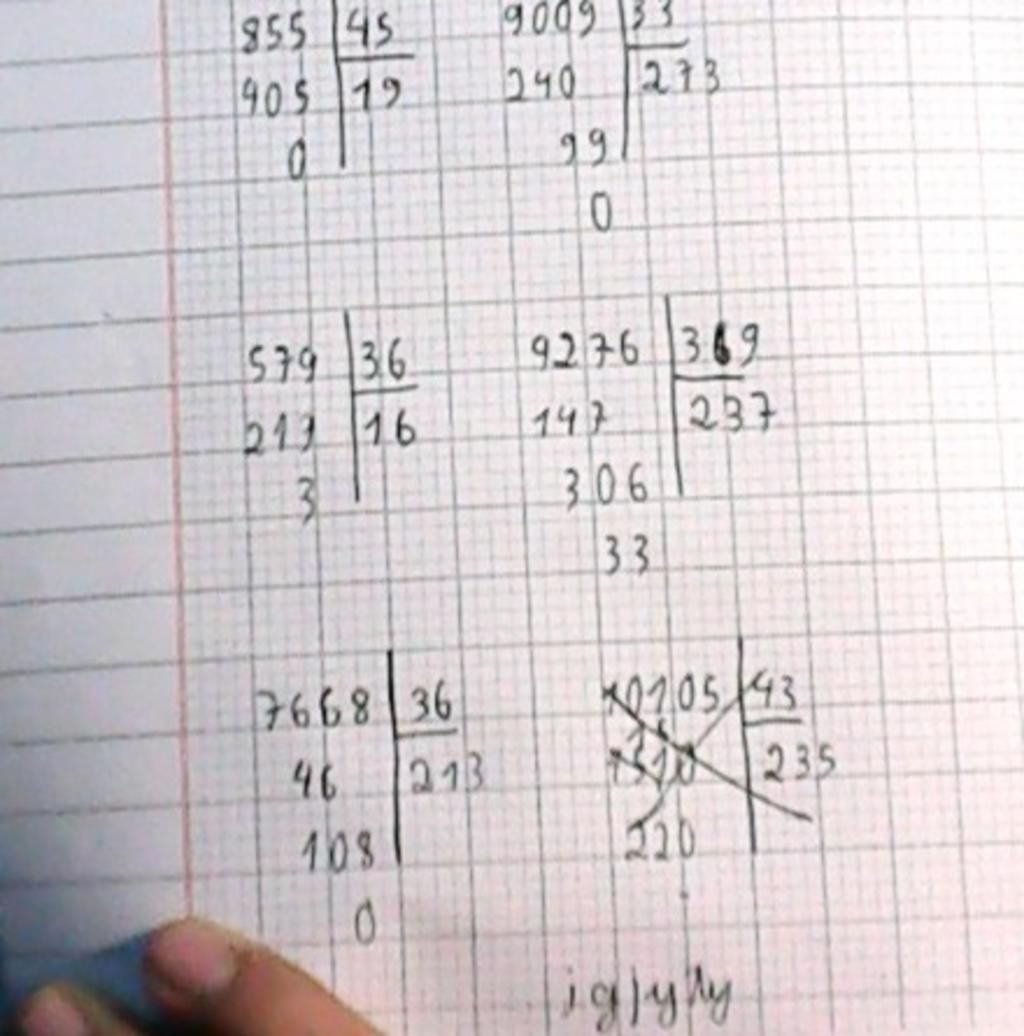 855 45 9009 33
405 19 240 273
0 99
0
579 36 9276 39
213 16 147 237
3 306
33
7668 36 10105 43
46 213 235
108 220
0